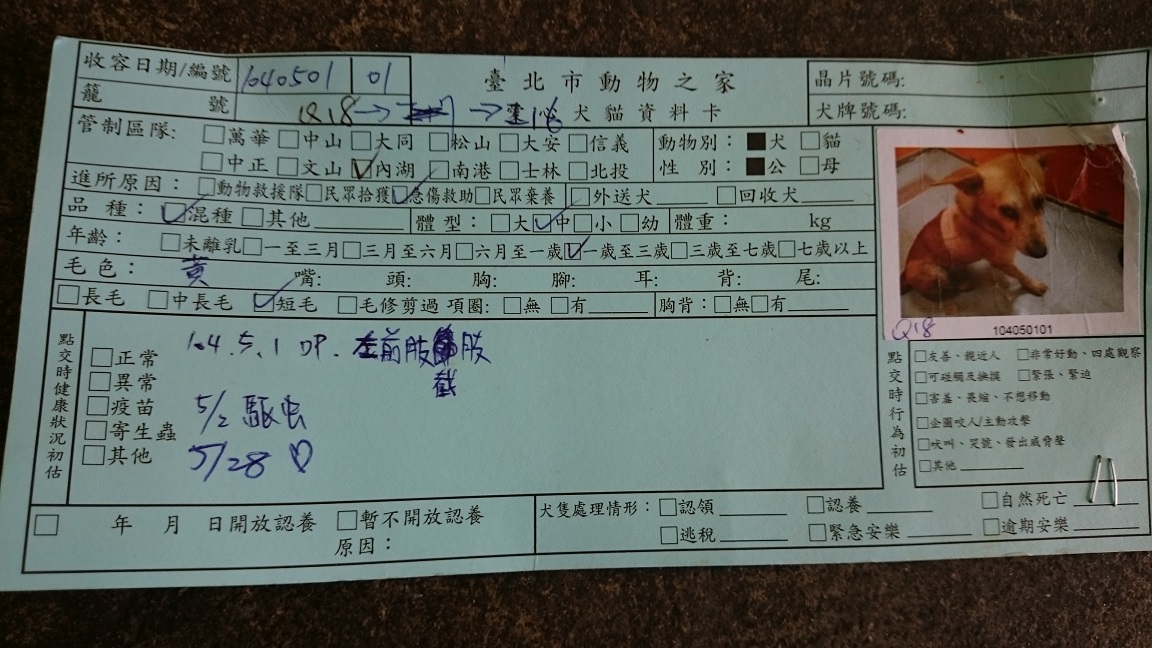 收容日期/編號 1040501 01
臺北市動物之家
晶片號碼:
籠 號 Q18→ → 16 犬貓資料卡
犬牌號碼:
管制區隊: □萬華 □中山 □大同 □松山 □大安 □信義 動物別: ■犬 □貓
□中正 □文山 ☑內湖 □南港 □士林 □北投 性 別: ■公 □母
進所原因: □動物救援隊 □民眾拾獲 ☑急傷救助 □民眾棄養 □外送犬____ □回收犬____
品 種: ☑混種 □其他____ 體 型: □大 ☑中 □小 □幼 體重: kg
年齡: □未離乳 □一至三月 □三月至六月 □六月至一歲 ☑一歲至三歲 □三歲至七歲 □七歲以上
毛色: 黃 嘴: 頭: 胸: 腳: 耳: 背: 尾:
□長毛 □中長毛 ☑短毛 □毛修剪過 項圈: □無 □有____ 胸背: □無 □有____
Q18 104050101
點交時健康狀況初估
□正常
□異常
□疫苗
□寄生蟲
□其他
104.5.1 OP. 左前肢 肢
截
5/2 驅虫
5/28
點交時行為初估
□友善、親近人 □非常好動、四處觀察
□可碰觸及撫摸 □緊張、緊迫
□害羞、畏縮、不想移動
□企圖咬人/主動攻擊
□吠叫、哭號、發出威脅聲
□其他____
□ 年 月 日開放認養 □暫不開放認養
原因:
犬隻處理情形: □認領____ □認養____ □自然死亡____
□逃稅____ □緊急安樂____ □逾期安樂____